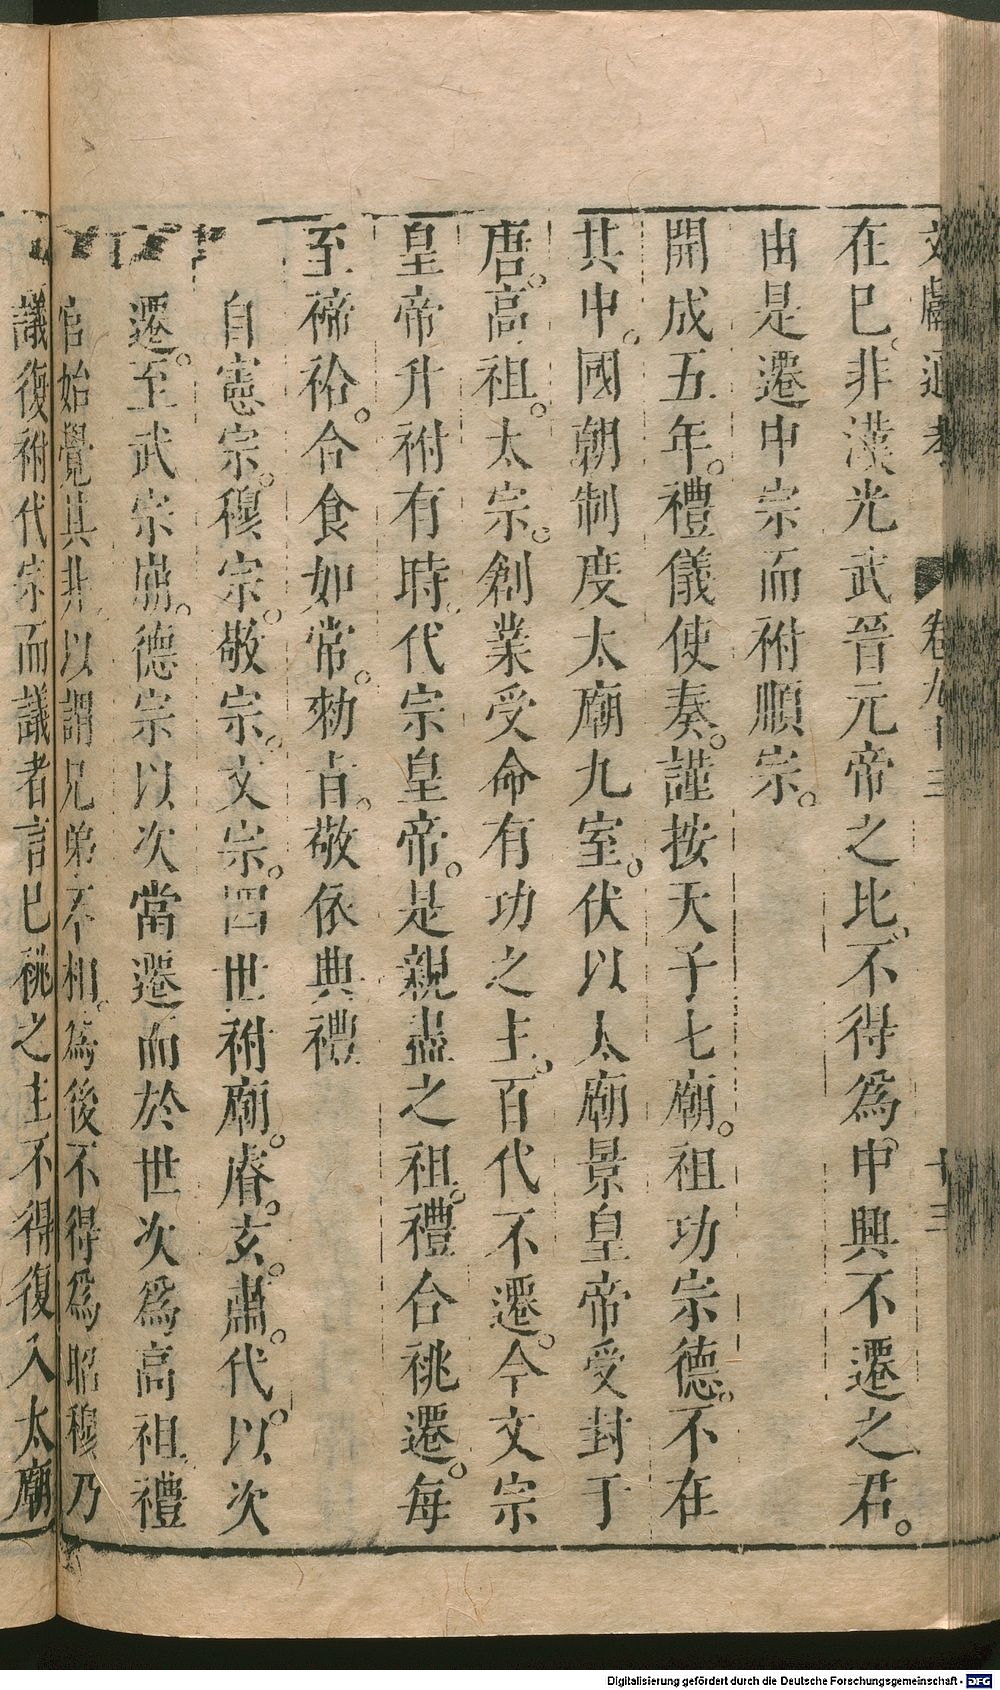 文獻通考 卷九十三 十三
在已非漢光武晉元帝之比不得爲中興不遷之君
由是遷中宗而祔順宗
開成五年禮儀使奏謹按天子七廟祖功宗德不在
其中國朝制度太廟九室伏以太廟景皇帝受封于
唐高祖太宗創業受命有功之主百代不遷今文宗
皇帝升祔有時代宗皇帝是親盡之祖禮合祧遷每
至禘祫合食如常勑旨敬依典禮
自憲宗穆宗敬宗文宗四世祔廟睿玄肅代以次
遷至武宗崩德宗以次當遷而於世次爲高祖禮
官始覺其非以謂兄弟不相爲後不得爲昭穆乃
議復祔代宗而議者言已祧之主不得復入太廟
Digitalisierung gefördert durch die Deutsche Forschungsgemeinschaft - DFG